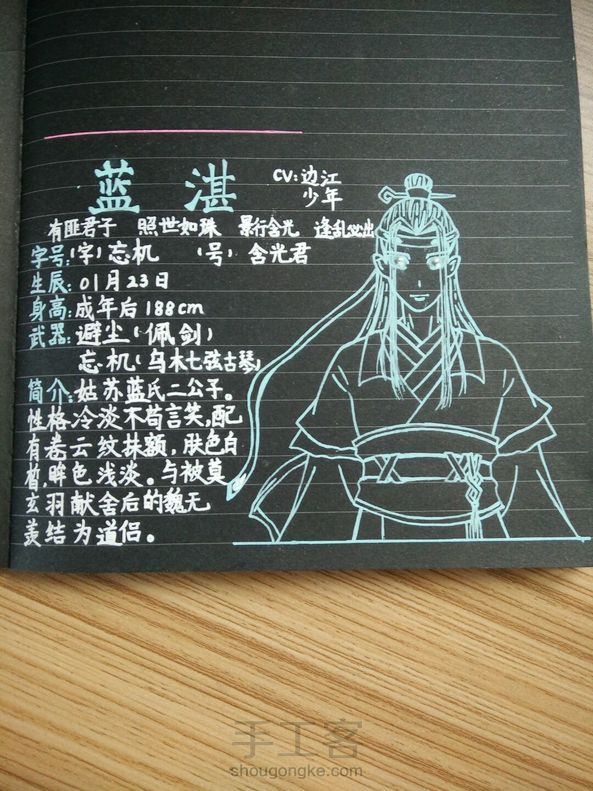 蓝 湛
CV:边江
少年
有匪君子 照世如珠 景行含光 逢乱必出
字号:(字)忘机 (号)含光君
生辰:01月23日
身高:成年后188cm
武器:避尘(佩剑)
忘机(乌木七弦古琴)
简介:姑苏蓝氏二公子。
性格冷淡不苟言笑,配
有卷云纹抹额,肤色白
皙,眸色浅淡。与被莫
玄羽献舍后的魏无
羡结为道侣。
手工客
shougongke.com